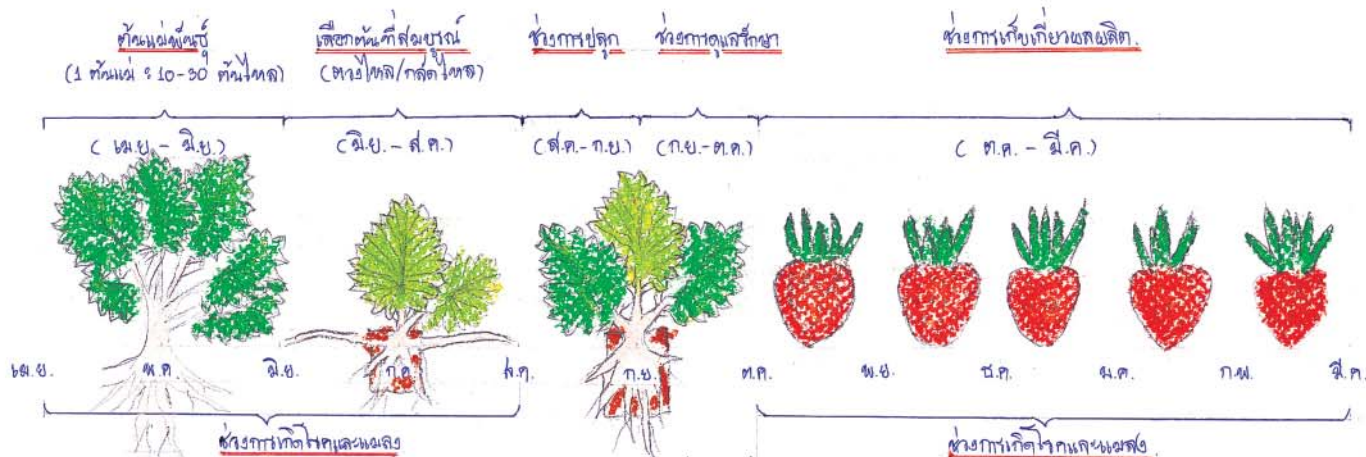 ต้นแม่พันธุ์
(1 ต้นแม่ : 10-30 ต้นไหล)
เลือกต้นที่สมบูรณ์
(ตวงไหล/กลัดไหล)
ช่วงการปลูก
ช่วงการดูแลรักษา
ช่วงการเก็บเกี่ยวผลผลิต.
(เม.ย. - มิ.ย.)
(มิ.ย. - ส.ค.)
(ส.ค. - ก.ย.)
(ก.ย. - ต.ค.)
(ต.ค. - มี.ค.)
เม.ย. พ.ค. มิ.ย. ก.ค. ส.ค. ก.ย. ต.ค. พ.ย. ธ.ค. ม.ค. ก.พ. มี.ค.
ช่วงการเกิดโรคและแมลง
ช่วงการเกิดโรคและแมลง